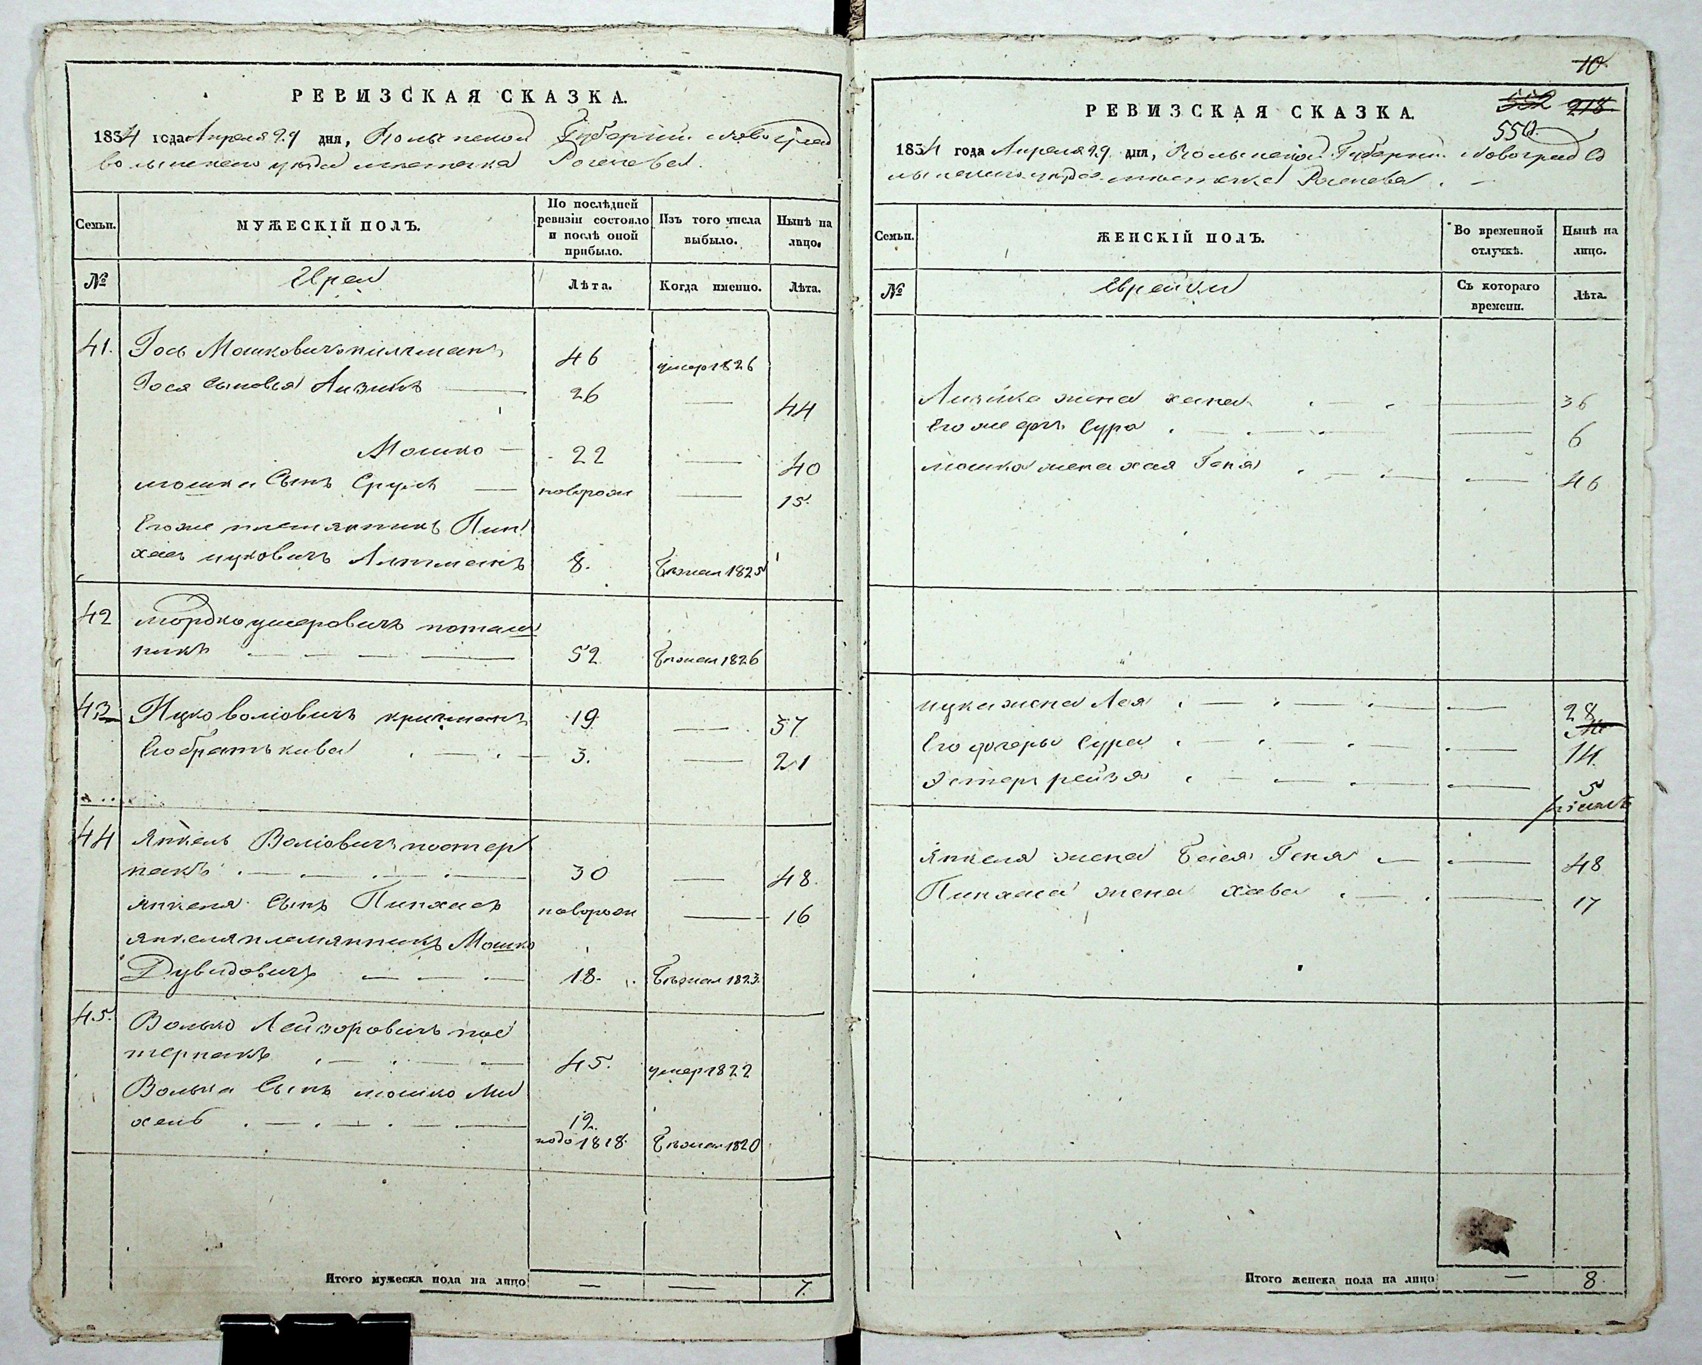 РЕВИЗСКАЯ СКАЗКА.
1834 года Апреля 29 дня, Волынской Губернии Новоград
волынского уезда местечка Рогачева.
Семьи.
МУЖЕСКІЙ ПОЛЪ.
По послѣдней ревизіи состояло и послѣ оной прибыло.
Изъ того числа выбыло.
Нынѣ на лицо.
№
Евреи
Лѣта.
Когда именно.
Лѣта.
41. Гось Мошковичъ 46 умер 1826
Гося сыновья Айзикъ 26 — 44
Мошко — 22 — 40
Мошки Сынъ Сруль — новорож — 15.
Его же племянникъ Пин
хасъ ицковичъ Алтманъ 8. Бежал 1825
42 Мордко умеровичъ
никъ 52 Бежал 1826
43 Ицко Волковичъ 19 — 37
Его братъ 3. — 21
44 Янкель Волковичъ постер
накъ 30 — 48.
Янкеля Сынъ Пинхасъ новорож — 16
Янкеля племянникъ Мошко
Дувидовичъ 18. Бежал 1823.
45. Волько Лейзоровичъ пос
тернакъ 45. умер 1822
Волька Сынъ мошко Ми
хель 12. 1818. Бежал 1820
Итого мужеска пола на лицо — — 7.
10
552 218
550
РЕВИЗСКАЯ СКАЗКА.
1834 года Апреля 29 дня, Волынской Губернии Новоград во
лынского уезда местечка Рогачева.
Семьи.
ЖЕНСКІЙ ПОЛЪ.
Во временной отлучкѣ.
Нынѣ на лицо.
№
Еврейки
Съ котораго времени.
Лѣта.
Айзика жена хана — 36
Его же дочь Сура — 6
Мошка жена хая Геня — 46
Ицка жена Лея — 28
Его дочерь Сура — 14
Эстер рейзя — 5
Янкеля жена Бася Геня — 48
Пинхаса жена Хава — 17
Итого женска пола на лицо — 8.